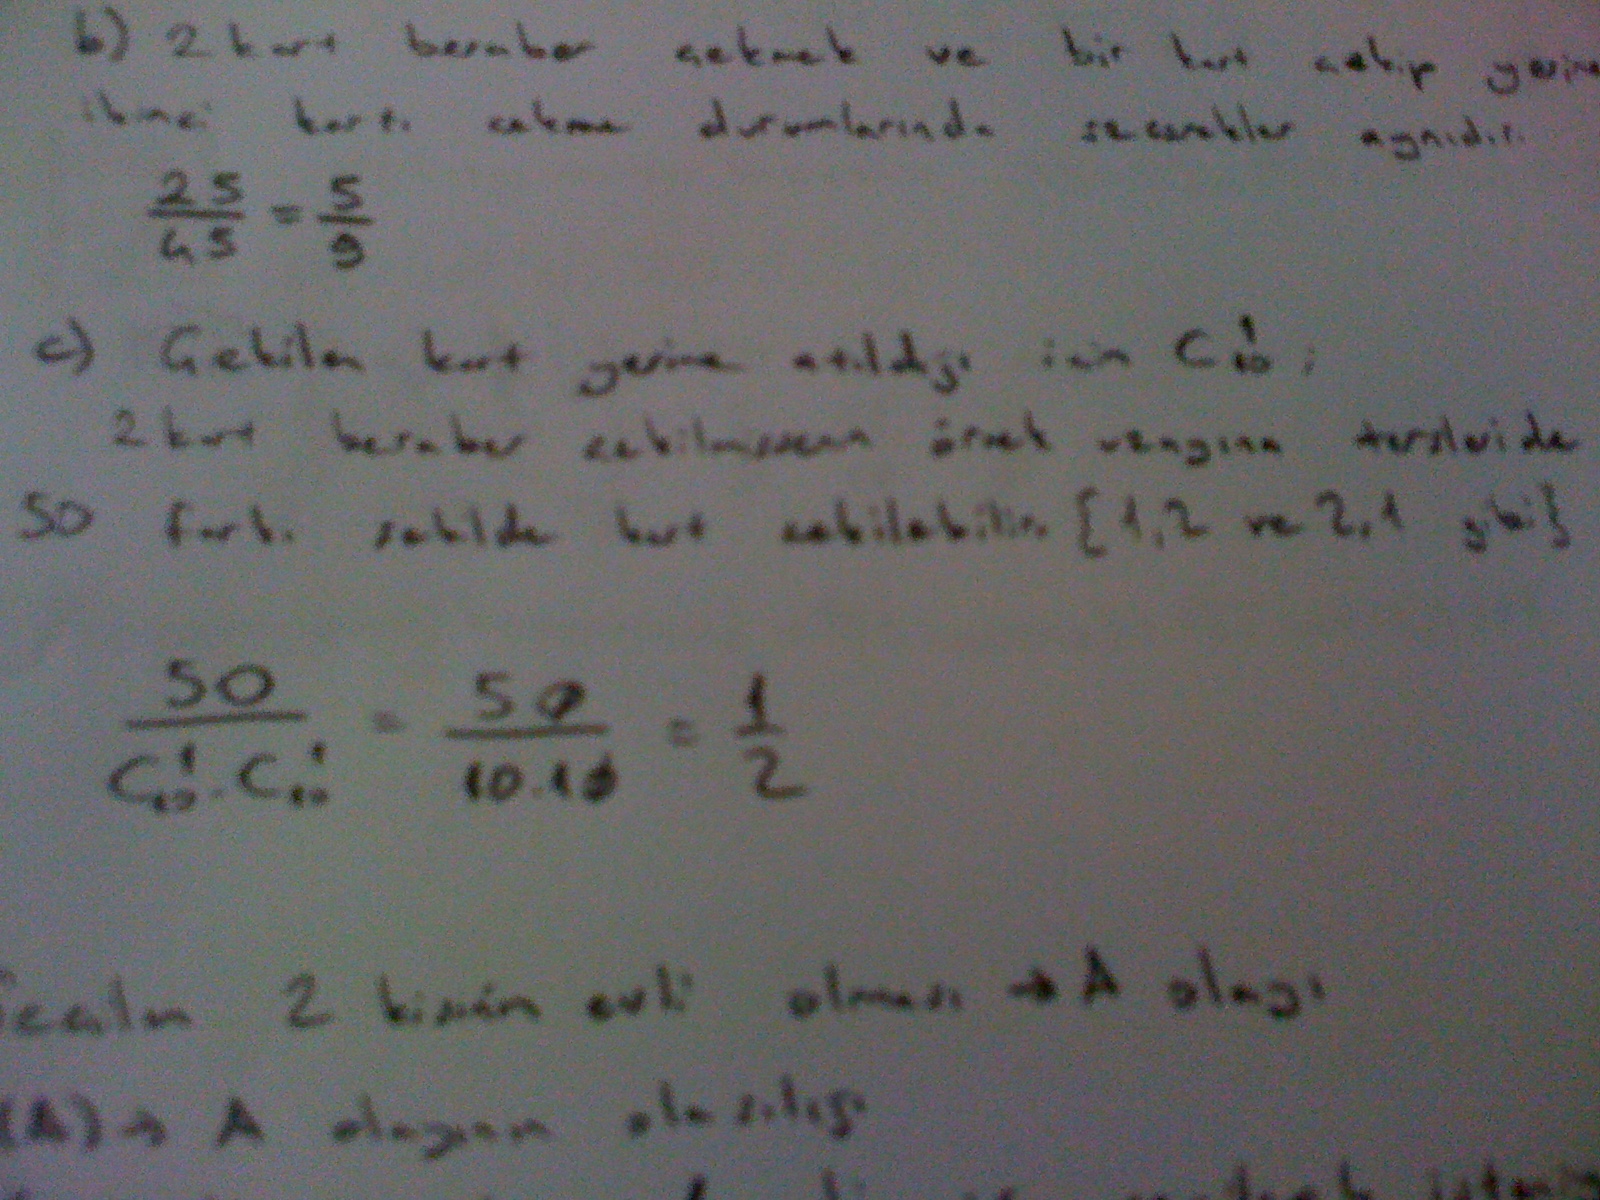 b) 2 kart beraber çekmek ve bir kart çekip yerine
ikinci kartı çekme durumlarında seçenekler aynıdır.
25/45 = 5/9
c) Çekilen kart yerine atıldığı için C₁₀¹ ;
2 kart beraber örnek uzayının tersleride
50 farklı şekilde kart çekilebilir. {1,2 ve 2,1 gibi}
50/(C₁₀¹ . C₁₀¹) = 50/(10.10) = 1/2
Seçilen 2 kişinin evli olması → A olayı
(A) → A olayının olasılığı